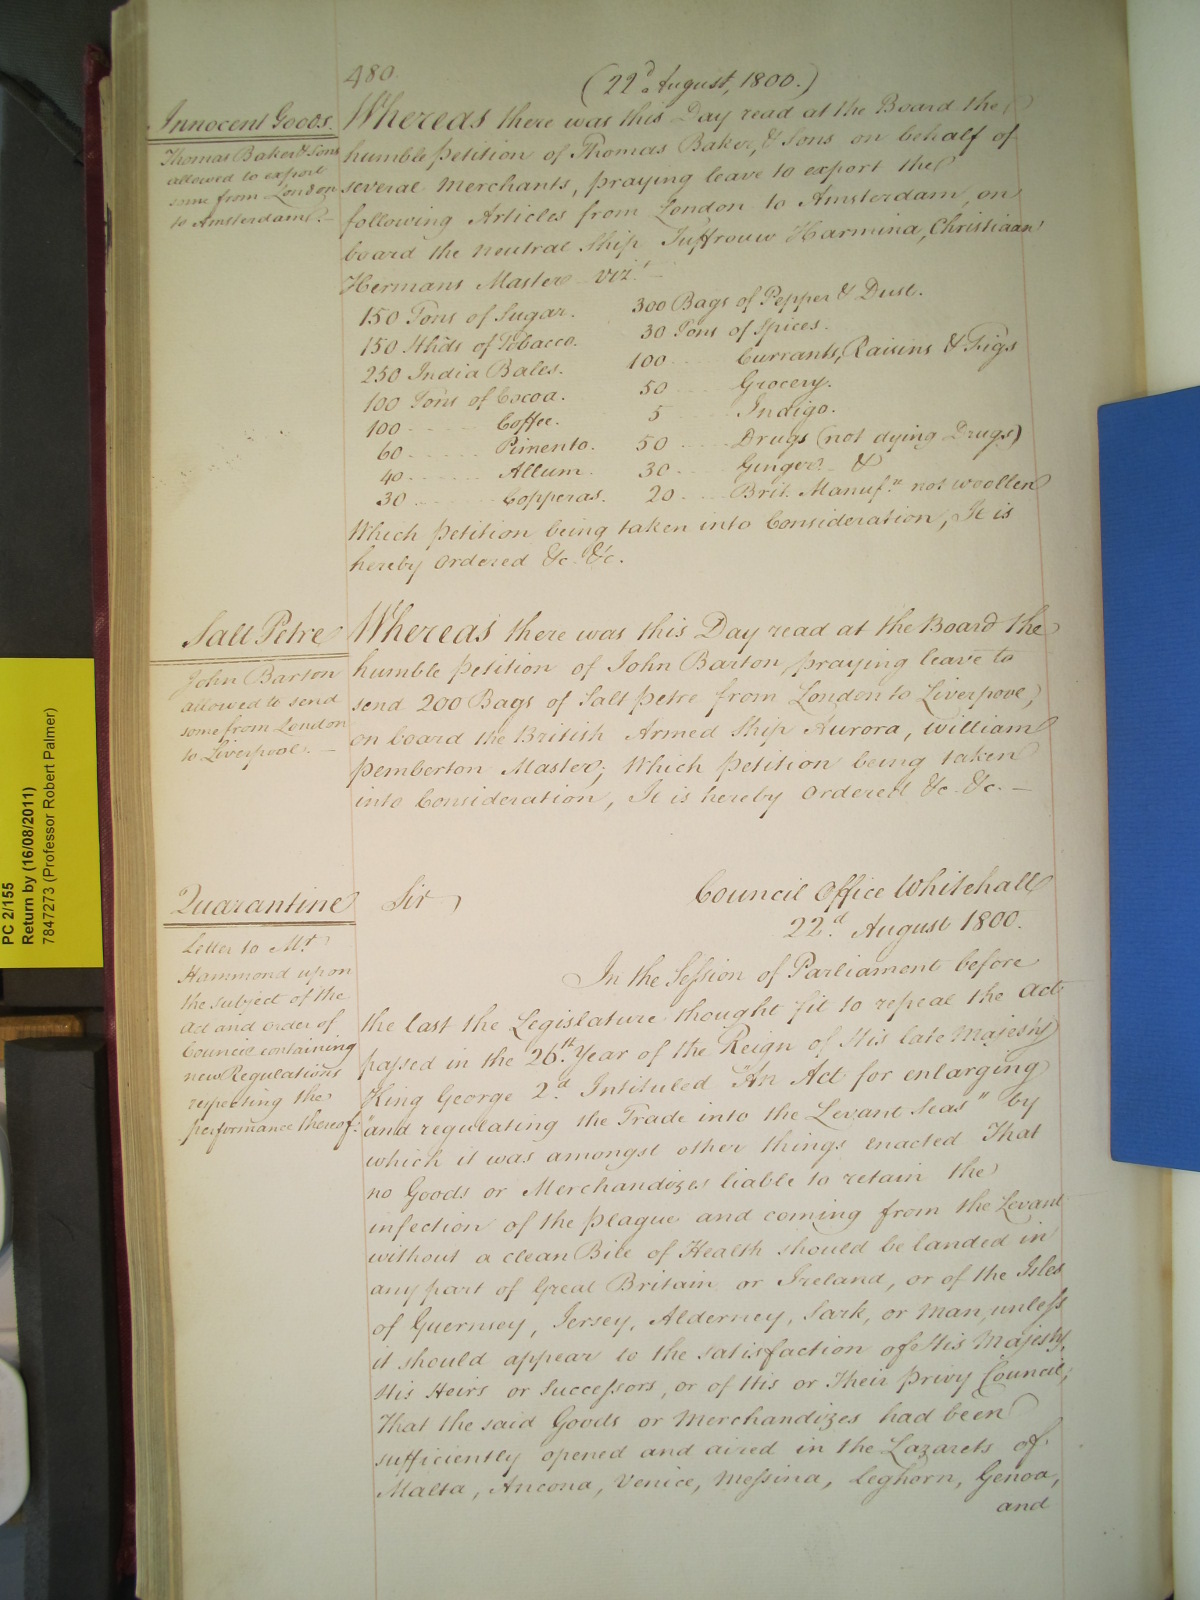 480.
(22.d August, 1800.)
Innocent Goods.
Thomas Baker & Sons
allowed to export
some from London
to Amsterdam.
Whereas there was this Day read at the Board the
humble Petition of Thomas Baker, & Sons on behalf of
several Merchants, praying leave to export the
following Articles from London to Amsterdam, on
board the neutral Ship Juffrouw Harmina, Christiaan
Hermans Master viz.t
150 Tons of Sugar.
150 Hhds of Tobacco.
250 India Bales.
100 Tons of Cocoa.
100 ....... Coffee.
60 ....... Pimento.
40 ....... Allum.
30 ....... Copperas.
300 Bags of Pepper & Dust.
30 Tons of Spices.
100 .... Currants, Raisins & Figs
50 .... Grocery.
5 .... Indigo.
50 .... Drugs (not dying Drugs)
30 .... Ginger &
20 .... Brit. Manuf.s not woollen
Which Petition being taken into Consideration, It is
hereby Ordered &c. &c.
Salt Petre
John Barton
allowed to send
some from London
to Liverpool.
Whereas there was this Day read at the Board the
humble Petition of John Barton, praying leave to
send 200 Bags of Salt Petre from London to Liverpool,
on board the British Armed Ship Aurora, William
Pemberton Master; Which Petition being taken
into Consideration, It is hereby Ordered &c. &c.
Quarantine
Letter to Mr.
Hammond upon
the subject of the
Act and Order of
Council containing
new Regulations
respecting the
performance thereof:
Sir,
Council Office Whitehall
22.d August 1800.
In the Session of Parliament before
the last the Legislature thought fit to repeal the Act
passed in the 26.th Year of the Reign of His late Majesty
King George 2.d Intituled "An Act for enlarging
"and regulating the Trade into the Levant Seas" by
which it was amongst other things enacted That
no Goods or Merchandizes liable to retain the
infection of the plague and coming from the Levant
without a clean Bill of Health should be landed in
any part of Great Britain or Ireland, or of the Isles
of Guernsey, Jersey, Alderney, Sark, or Man, unless
it should appear to the satisfaction of His Majesty,
His Heirs or Successors, or of His or Their Privy Council,
That the said Goods or Merchandizes had been
sufficiently opened and aired in the Lazarets of
Malta, Ancona, Venice, Messina, Leghorn, Genoa,
and
PC 2/155
Return by (16/08/2011)
7847273 (Professor Robert Palmer)